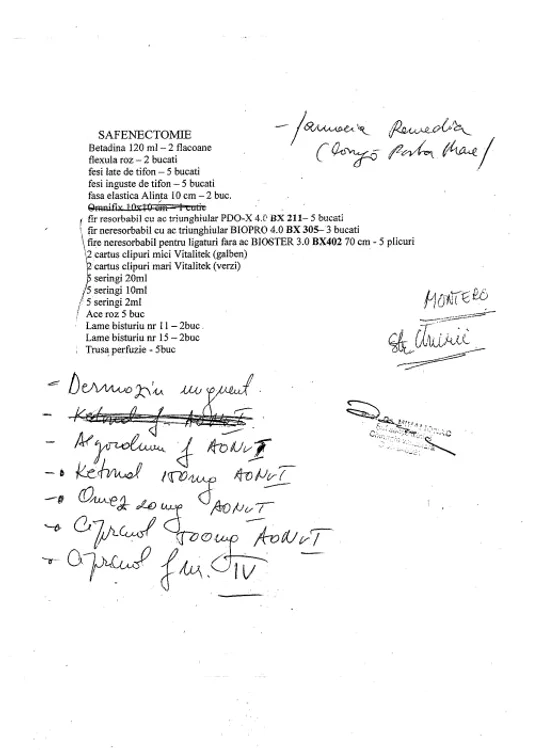 - farmacia Remedia
(lângă Poarta Mare)
SAFENECTOMIE
Betadina 120 ml – 2 flacoane
flexula roz – 2 bucati
fesi late de tifon – 5 bucati
fesi inguste de tifon – 5 bucati
fasa elastica Alinta 10 cm – 2 buc.
Omnifix 10x10 cm – 1 cutie
fir resorbabil cu ac triunghiular PDO-X 4.0 BX 211– 5 bucati
fir neresorbabil cu ac triunghiular BIOPRO 4.0 BX 305– 3 bucati
fire neresorbabil pentru ligaturi fara ac BIOSTER 3.0 BX402 70 cm - 5 plicuri
2 cartus clipuri mici Vitalitek (galben)
2 cartus clipuri mari Vitalitek (verzi)
5 seringi 20ml
5 seringi 10ml
5 seringi 2ml
Ace roz 5 buc
Lame bisturiu nr 11 – 2buc
Lame bisturiu nr 15 – 2buc
Trusa perfuzie - 5buc
MONTERO
str Unirii
- Dermazin unguent
- Ketonal f AONVI
- Algocalmin f AONVI
- Ketonal 150mg AONVI
- Omez 20mg AONVI
- Ciprinol 500mg AONVI
- Ciprinol f nr. IV